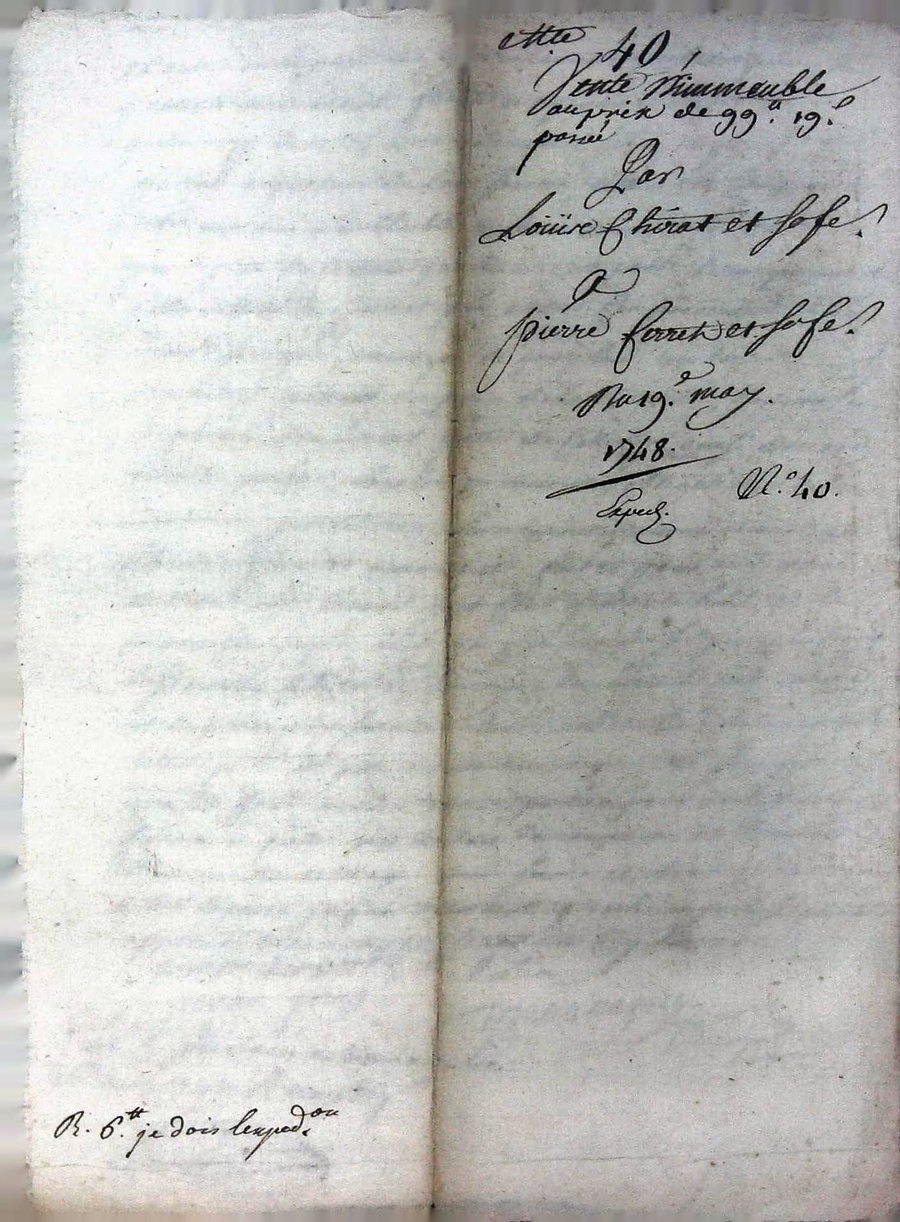 Cotte 40
Vente d'immeuble
au prix de 99ᵗᵗ. 19.ˢ
payé
Par
Loüise Chirat et sa fe.
A
pierre forrest et sa fe.
Du 19.ᵉ may.
1748.
Expéd.
N.º 40.
R. 6.ᵗᵗ je dois lexped.ᵒⁿ